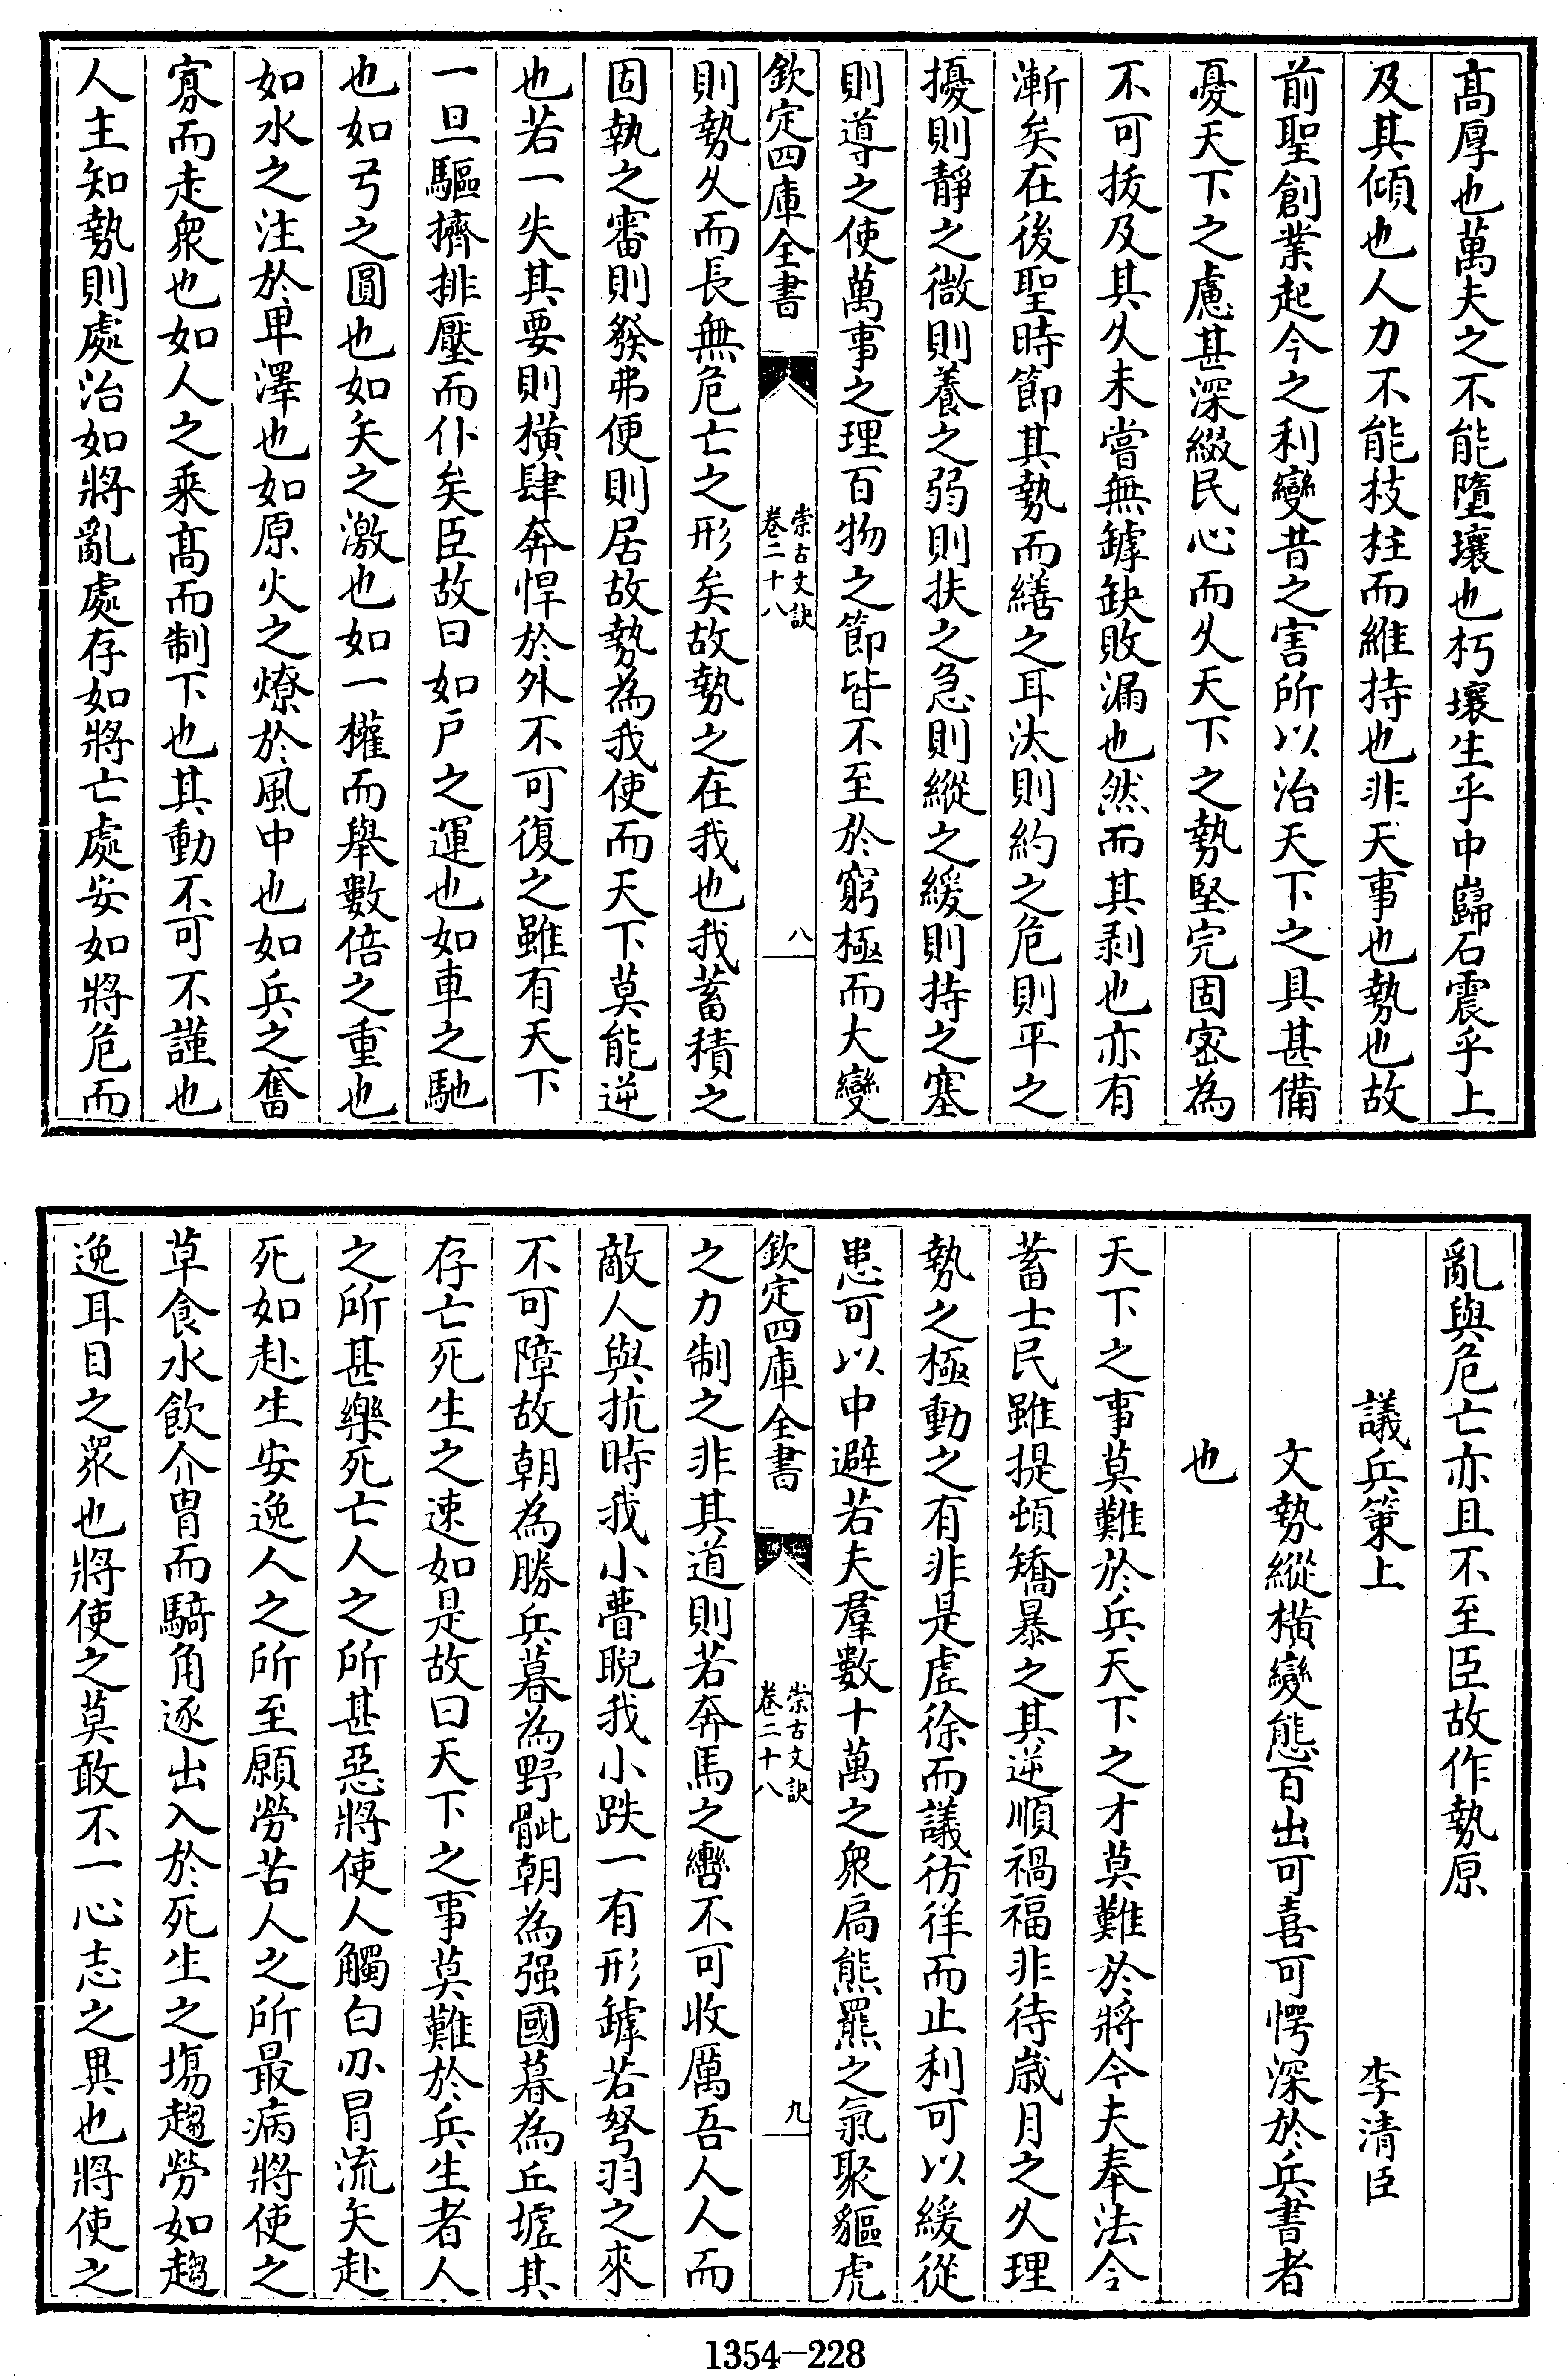 髙厚也萬夫之不能墮壞也朽壤生乎中巋石震乎上
及其傾也人力不能枝柱而維持也非天事也勢也故
前聖創業起今之利變昔之害所以治天下之具甚備
憂天下之慮甚深綴民心而乆天下之勢堅完固宻為
不可拔及其乆未嘗無罅缺敗漏也然而其剥也亦有
漸矣在後聖時節其勢而繕之耳汰則約之危則平之
擾則靜之微則養之弱則扶之急則縱之緩則持之塞
則導之使萬事之理百物之節皆不至於窮極而大變
欽定四庫全書
崇古文訣
卷二十八
八
則勢乆而長無危亡之形矣故勢之在我也我蓄積之
固執之審則發弗便則居故勢為我使而天下莫能逆
也若一失其要則横肆奔悍於外不可復之雖有天下
一旦驅擠排壓而仆矣臣故曰如户之運也如車之馳
也如弓之圓也如矢之激也如一權而舉數倍之重也
如水之注於卑澤也如原火之燎於風中也如兵之奮
寡而走衆也如人之乘髙而制下也其動不可不謹也
人主知勢則處治如將亂處存如將亡處安如將危而
亂與危亡亦且不至臣故作勢原
議兵策上
李清臣
文勢縱横變態百出可喜可愕深於兵書者
也
天下之事莫難於兵天下之才莫難於將今夫奉法令
蓄士民雖提頓矯暴之其逆順禍福非待嵗月之乆理
勢之極動之有非是虚徐而議彷徉而止利可以緩從
患可以中避若夫羣數十萬之衆扄熊羆之氣聚貙虎
欽定四庫全書
崇古文訣
卷二十八
九
之力制之非其道則若奔馬之轡不可收厲吾人人而
敵人與抗時我小瞢睨我小跌一有形罅若弩羽之來
不可障故朝為勝兵暮為野骴朝為强國暮為丘墟其
存亡死生之速如是故曰天下之事莫難於兵生者人
之所甚樂死亡人之所甚惡將使人觸白刃冒流矢赴
死如赴生安逸人之所至願勞苦人之所最病將使之
草食水飲介胄而騎角逐出入於死生之塲趨勞如趨
逸耳目之衆也將使之莫敢不一心志之異也將使之
1354-228